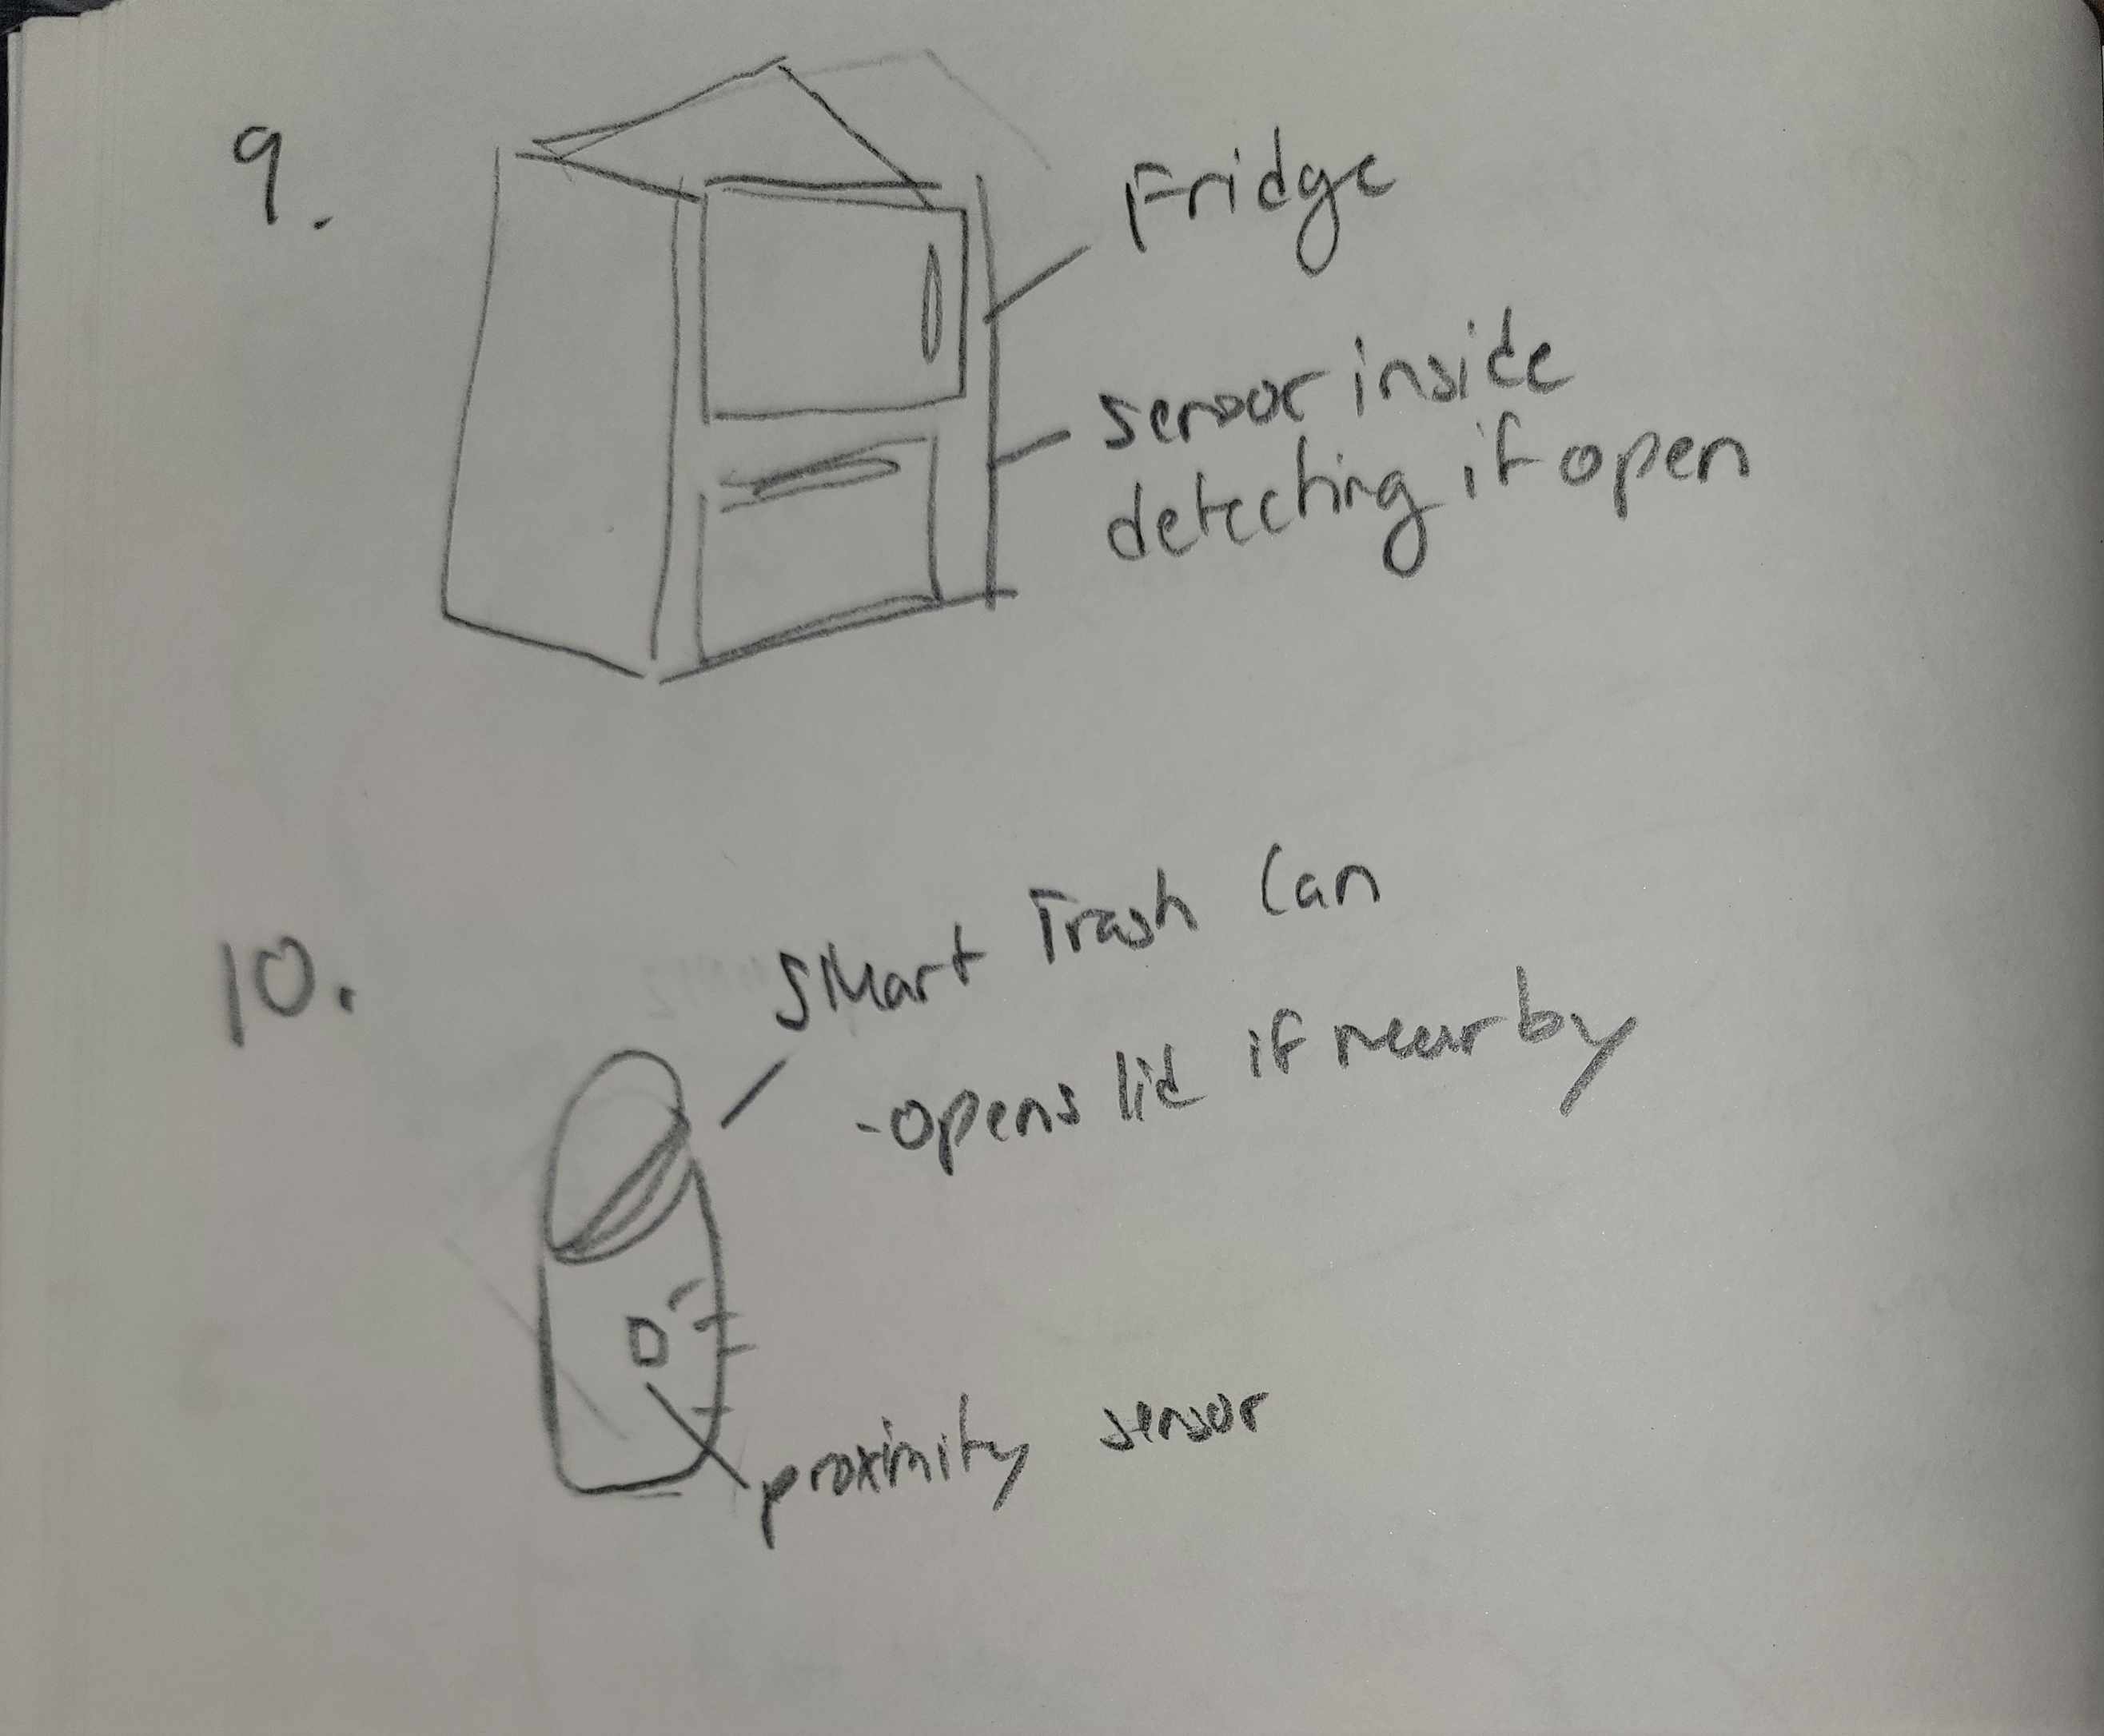 9.
Fridge
sensor inside
detecting if open
10.
Smart Trash Can
-opens lid if nearby
proximity sensor